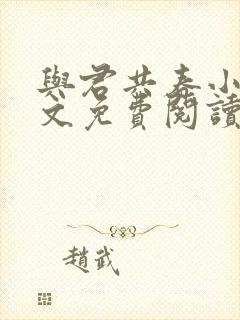 與君共春小
文免費閱讀
趙武